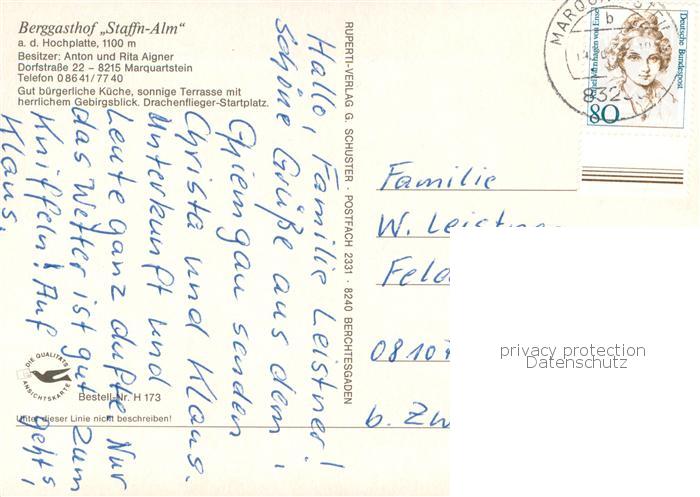 Berggasthof „Staffn-Alm“
a. d. Hochplatte, 1100 m
Besitzer: Anton und Rita Aigner
Dorfstraße 22 – 8215 Marquartstein
Telefon 0 86 41 / 77 40
Gut bürgerliche Küche, sonnige Terrasse mit
herrlichem Gebirgsblick. Drachenflieger-Startplatz.
Hallo, Familie Leistner!
schöne Grüße aus dem
Chiemgau senden
Christa und Klaus.
Unterkunft und
Leute ganz dufte. Nur
das Wetter ist gut zum
Kniffeln! Auf geht's,
Klaus.
DIE QUALITÄTS
ANSICHTSKARTE
Bestell-Nr. H 173
Unter dieser Linie nicht beschreiben!
RUPERTI-VERLAG G. SCHUSTER · POSTFACH 2331 · 8240 BERCHTESGADEN
MARQUARTSTEIN
b
832
Deutsche Bundespost
Rahel Varnhagen von Ense
80
Familie
W. Leistner
Feld
0810
b. Zw
privacy protection
Datenschutz